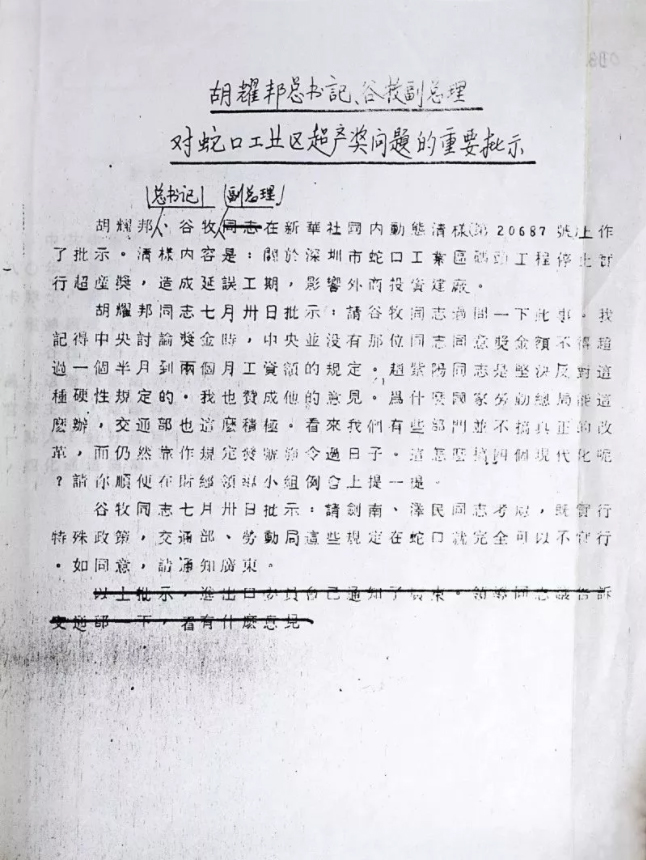 胡耀邦总书記、谷牧副总理
对蛇口工业区超产奖问题的重要批示
总书记 副总理
胡耀邦、谷牧同志在新華社国内動態清樣 20687 號上作
了批示。清樣内容是：關於深圳市蛇口工業區碼頭工程停止暫
行超産獎，造成延誤工期，影響外商投資建廠。
胡耀邦同志七月卅日批示：請谷牧同志過問一下此事。我
記得中央討論獎金時，中央並没有那位同志同意獎金額不得超
過一個半月到兩個月工資額的規定。趙紫陽同志是堅決反對這
種硬性規定的。我也贊成他的意見。爲什麼國家勞動總局能這
麼辦，交通部也這麼積極。看來我們有些部門並不搞真正的改
革，而仍然靠作規定發號施令過日子。這怎麼搞四個現代化呢
？請你順便在財經領導小組例会上提一提。
谷牧同志七月卅日批示：請劍南、澤民同志考慮，既實行
特殊政策，交通部、勞動局這些規定在蛇口就完全可以不實行
。如同意，請通知廣東。
以上批示，進出口委員会已通知了廣東。 同志 告訴
交通部一下，看有什麼意見